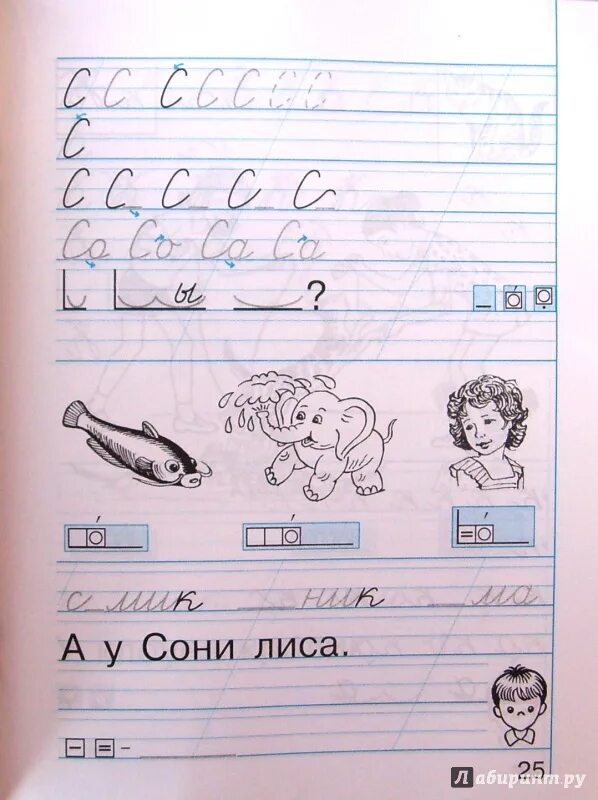 С С С С С С С
С
С С_ С_ С_ С_
Со Со Са Са
ы ?
с_мик __ник __ма
А у Сони лиса.
25
Лабиринт.ру